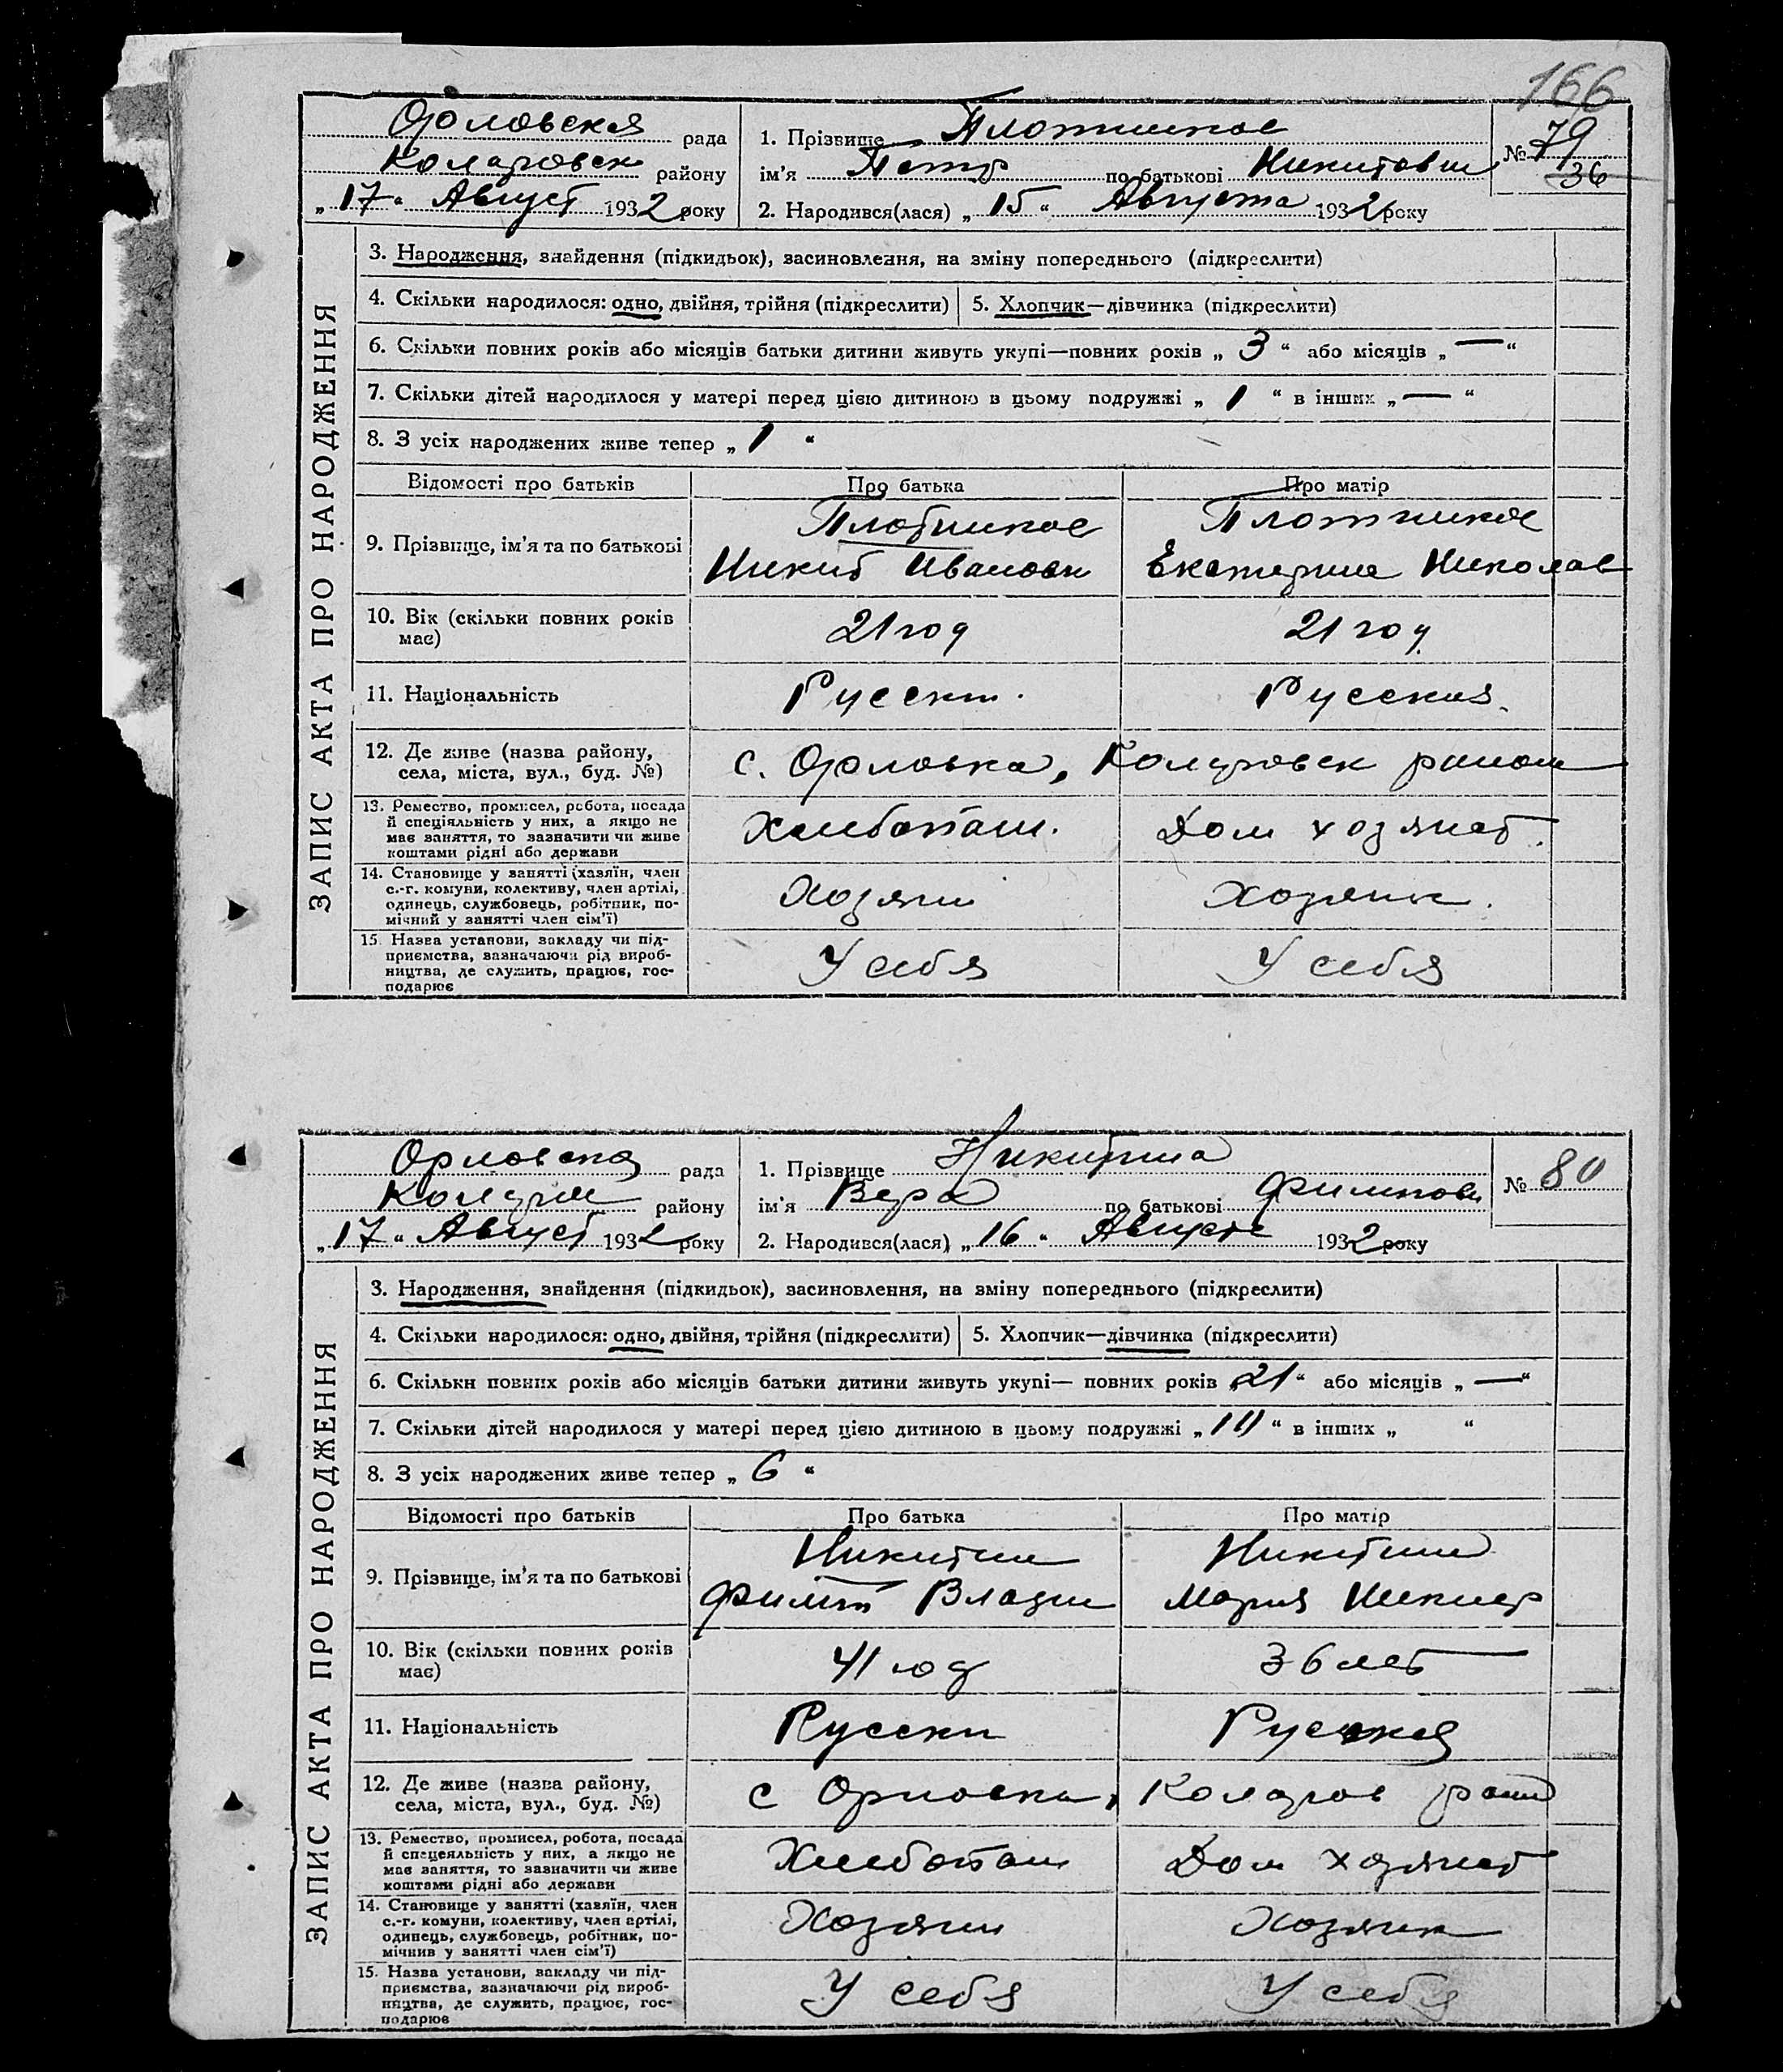 166
Орловская рада
Коларовск району
„17“ Август 1932 року
1. Прізвище Плотников
ім'я Петр по батькові Никитович
2. Народився(лася) „15“ Августа 1932 року
№ 79
36
ЗАПИС АКТА ПРО НАРОДЖЕННЯ
3. Народження, знайдення (підкидьок), засиновлення, на зміну попереднього (підкреслити)
4. Скільки народилося: одно, двійня, трійня (підкреслити) 5. Хлопчик—дівчинка (підкреслити)
6. Скільки повних років або місяців батьки дитини живуть укупі—повних років „3“ або місяців „—“
7. Скільки дітей народилося у матері перед цією дитиною в цьому подружжі „1“ в інших „—“
8. З усіх народжених живе тепер „1“
Відомості про батьків Про батька Про матір
9. Прізвище, ім'я та по батькові
Плотников
Никит Иванови
Плотников
Екатерина Николав
10. Вік (скільки повних років має) 21 год 21 год
11. Національність Русски Русская
12. Де живе (назва району,
села, міста, вул., буд. №) с. Орловка, Коларовск район
13. Ремество, промисел, робота, посада
й спеціяльність у них, а якщо не
має заняття, то зазначити чи живе
коштами рідні або держави
Хлебопаш. Дом хозяист.
14. Становище у занятті (хазяїн, член
с.-г. комуни, колективу, член артілі,
одинець, службовець, робітник, по-
мічний у занятті член сім'ї)
Хозяин Хозяик.
15. Назва установи, закладу чи під-
приємства, зазначаючи рід вироб-
ництва, де служить, працює, гос-
подарює
У себя У себя
Орловская рада
Коларов району
„17“ Август 1932 року
1. Прізвище Никитина
ім'я Вера по батькові Филипов
2. Народився(лася) „16“ Августа 1932 року
№ 80
ЗАПИС АКТА ПРО НАРОДЖЕННЯ
3. Народження, знайдення (підкидьок), засиновлення, на зміну попереднього (підкреслити)
4. Скільки народилося: одно, двійня, трійня (підкреслити) 5. Хлопчик—дівчинка (підкреслити)
6. Скільки повних років або місяців батьки дитини живуть укупі— повних років „21“ або місяців „—“
7. Скільки дітей народилося у матері перед цією дитиною в цьому подружжі „ “ в інших „ “
8. З усіх народжених живе тепер „6“
Відомості про батьків Про батька Про матір
9. Прізвище, ім'я та по батькові
Никитин
Филип
Никитина
Мария
10. Вік (скільки повних років має) 41 год 36 лет
11. Національність Русски Русская
12. Де живе (назва району,
села, міста, вул., буд. №) с Орловка, Коларов район
13. Ремество, промисел, робота, посада
й спецеяльність у них, а якщо не
має заняття, то зазначити чи живе
коштами рідні або держави
Хлебопаш Дом хозяист
14. Становище у занятті (хазяїн, член
с.-г. комуни, колективу, член артілі,
одинець, службовець, робітник, по-
мічнив у занятті член сім'ї)
Хозяин Хозяик
15. Назва установи, закладу чи під-
приємства, зазначаючи рід вироб-
ництва, де служить, працює, гос-
подарює
У себя У себя